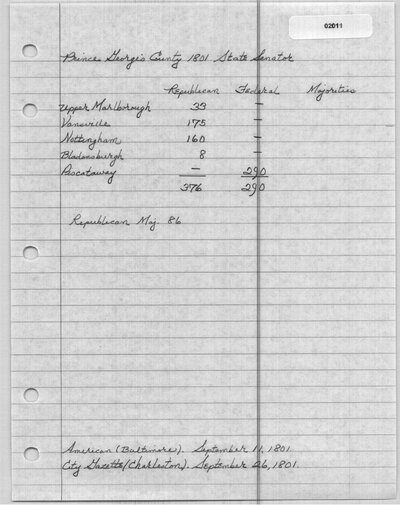 02011
Prince George's County 1801 State Senator
Republican Federal Majorities
Upper Marlborough 33 —
Vansville 175 —
Nottingham 160 —
Bladensburgh 8 —
Piscataway — 290
376 290
Republican Maj. 86
American (Baltimore). September 11, 1801.
City Gazette (Charleston). September 26, 1801.